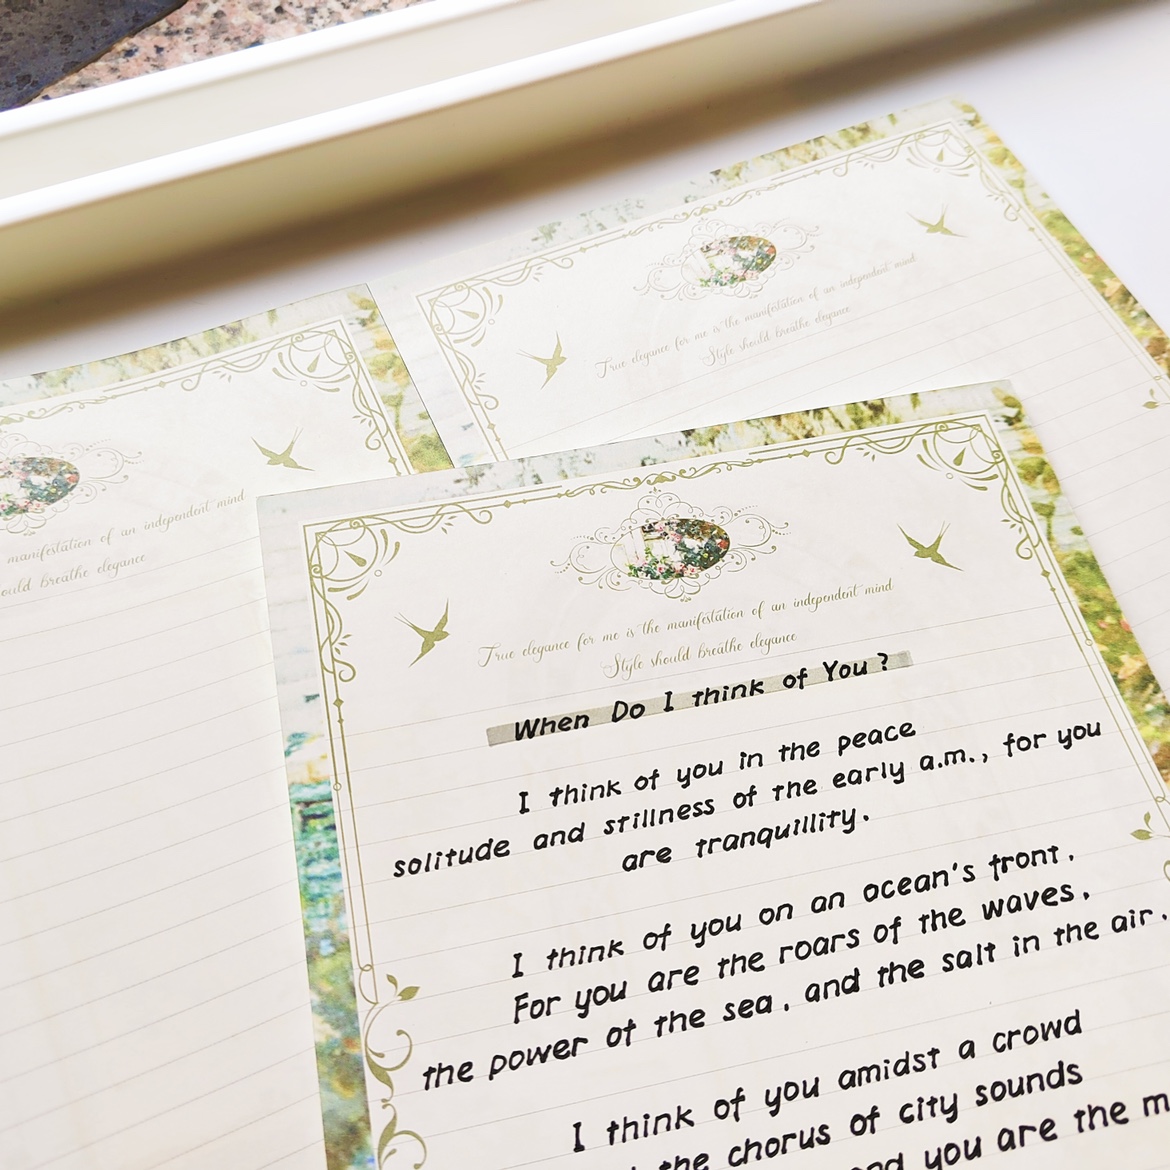 True elegance for me is the manifestation of an independent mind
Style should breathe elegance
manifestation of an independent mind
should breathe elegance
True elegance for me is the manifestation of an independent mind
Style should breathe elegance
When Do I think of You?
I think of you in the peace
solitude and stillness of the early a.m., for you
are tranquillity.
I think of you on an ocean's front.
For you are the roars of the waves.
the power of the sea. and the salt in the air.
I think of you amidst a crowd
the chorus of city sounds
you are the